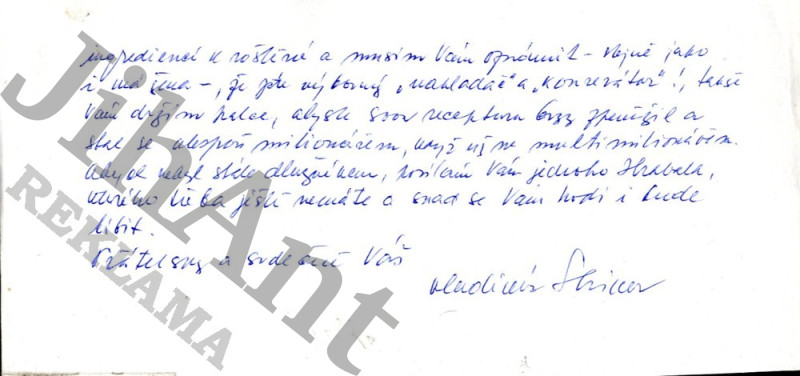 ingrediencí k roštěné a musím Vám oznámit – stejně jako
i má žena –, že jste výborný „nakladač“ a „konzervátor“!, takže
Vám držím palce, abyste svou recepturu brzy zpeněžil a
stal se alespoň milionářem, když už ne multimilionářem.
Abych nebyl stále dlužníkem, posílám Vám jednoho Hrabala,
kterého třeba ještě nemáte a snad se Vám hodí i bude
líbit.
Přátelsky a srdečně Váš
Vladimír
JihAnt
REKLAMA